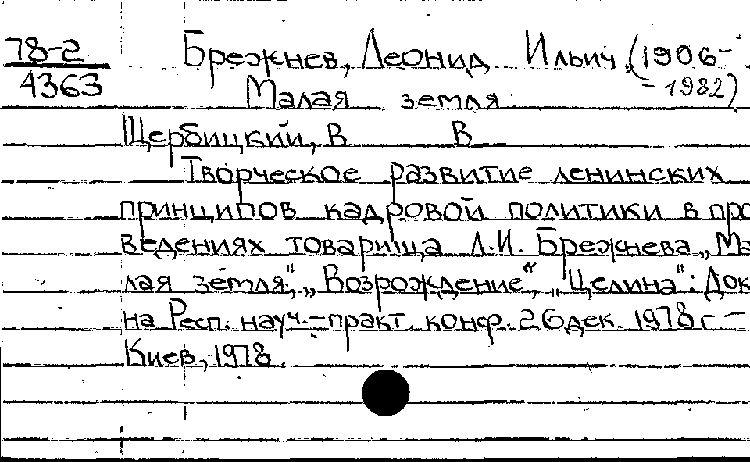 78-2
4363
Брежнев, Леонид Ильич (1906-
-1982)
Малая земля
Щербицкий, В В
Творческое развитие ленинских
принципов кадровой политики в про
ведениях товарища Л.И. Брежнева „Ма
лая земля“, „Возрождение“, „Целина“: Док
на Респ. науч.-практ. конф. 26 дек. 1978 г. -
Киев, 1978.